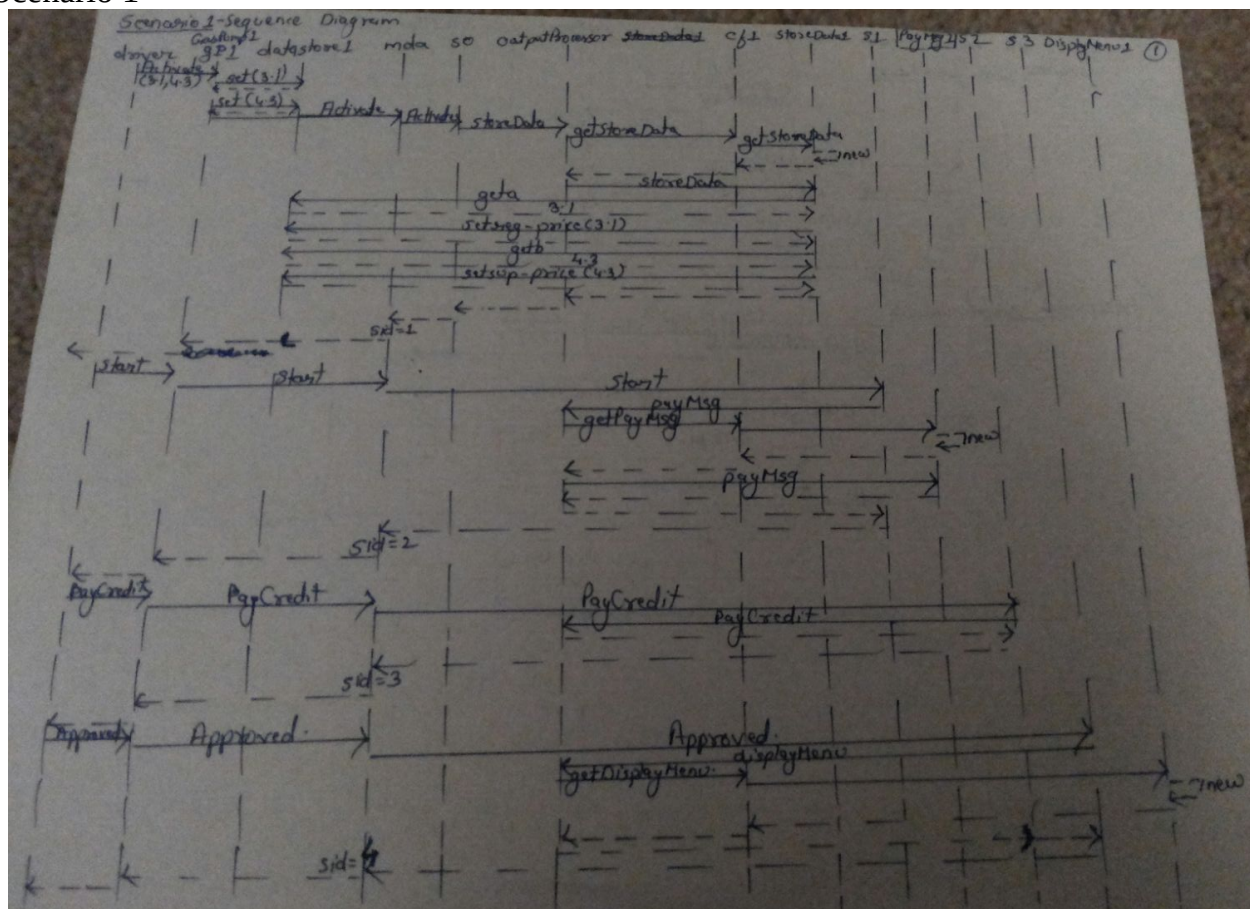 Scenario 1
Scenario 1 - Sequence Diagram
GasPump1
driver gP1 datastore1 mda s0 outputProcessor storeData1 cf1 storeData1 s1 PayMsg2 s2 s3 DisplayMenu1 1
Activate
(3.1,4.3) set(3.1)
set(4.3) Activate Activate storeData getStoreData getStoreData
new
storeData
geta
3.1
setreg-price(3.1)
getb
4.3
setsup-price(4.3)
sid=1
start start Start
payMsg
getPayMsg new
payMsg
sid=2
PayCredit PayCredit PayCredit
PayCredit
sid=3
Approved Approved. Approved.
displayMenu
getDisplayMenu. new
sid=